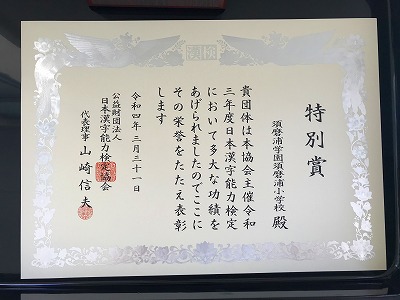 漢検
特別賞
須磨浦学園須磨浦小学校 殿
貴団体は本協会主催令和
三年度日本漢字能力検定
において多大な功績を
あげられましたのでここに
その栄誉をたたえ表彰
します
令和四年三月三十一日
公益財団法人
日本漢字能力検定協会
代表理事 山崎信夫